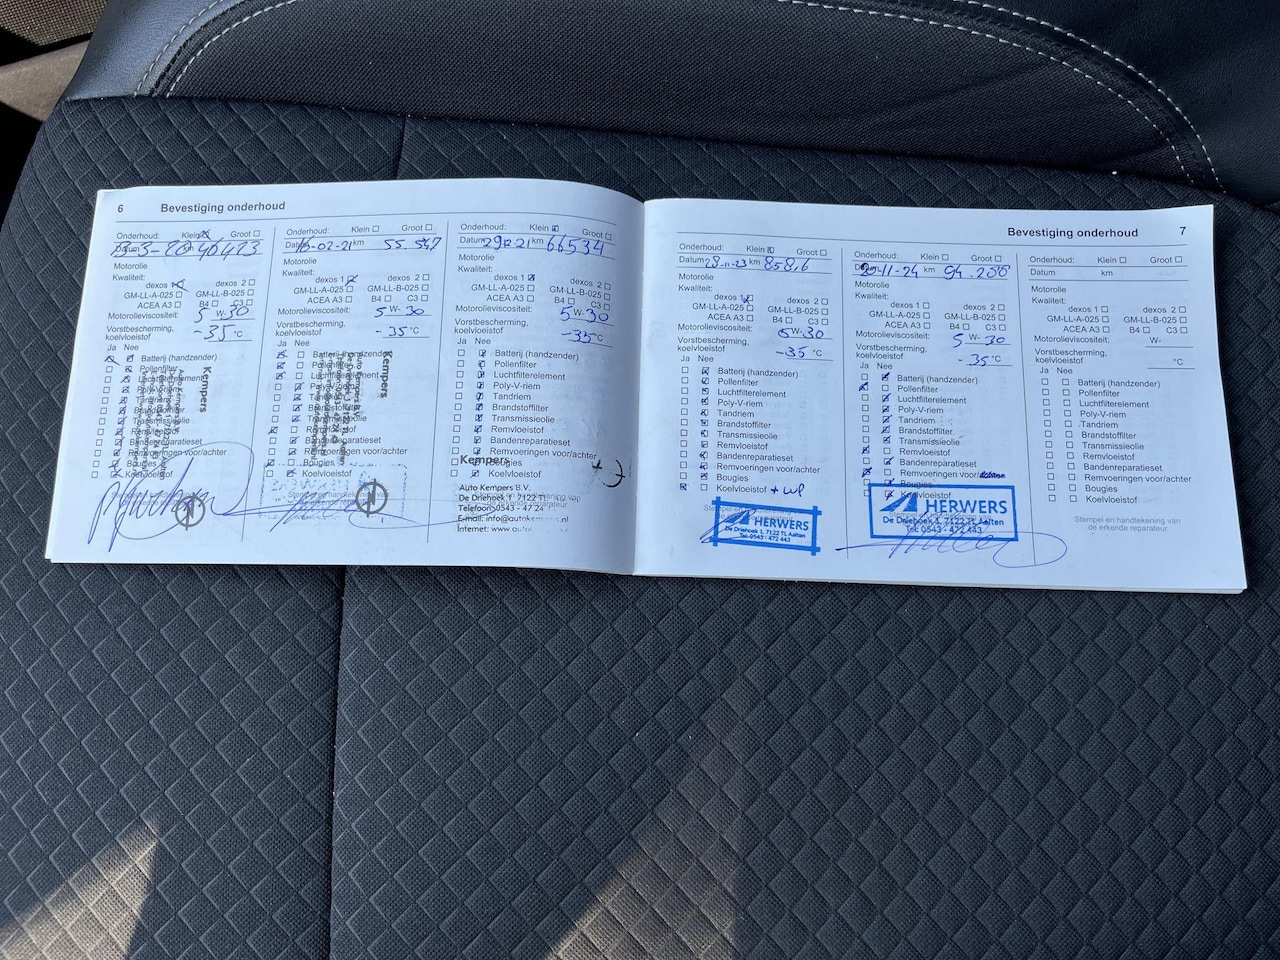 6 Bevestiging onderhoud
Onderhoud: Klein Groot
Datum 13-3-20 km 40423
Motorolie
Kwaliteit:
dexos 1 dexos 2
GM-LL-A-025 GM-LL-B-025
ACEA A3 B4 C3
Motorolieviscositeit: 5 W-30
Vorstbescherming, koelvloeistof -35 °C
Ja Nee
Batterij (handzender)
Pollenfilter
Luchtfilterelement
Poly-V-riem
Tandriem
Brandstoffilter
Transmissieolie
Remvloeistof
Bandenreparatieset
Remvoeringen voor/achter
Bougies
Koelvloeistof
Kempers
Onderhoud: Klein Groot
Datum -02-21 km 55.547
Motorolie
Kwaliteit:
dexos 1 dexos 2
GM-LL-A-025 GM-LL-B-025
ACEA A3 B4 C3
Motorolieviscositeit: 5 W-30
Vorstbescherming, koelvloeistof -35 °C
Ja Nee
Batterij (handzender)
Pollenfilter
Luchtfilterelement
Poly-V-riem
Tandriem
Brandstoffilter
Transmissieolie
Remvloeistof
Bandenreparatieset
Remvoeringen voor/achter
Bougies
Koelvloeistof
Kempers
Onderhoud: Klein Groot
Datum km 66534
Motorolie
Kwaliteit:
dexos 1 dexos 2
GM-LL-A-025 GM-LL-B-025
ACEA A3 B4 C3
Motorolieviscositeit: 5 W-30
Vorstbescherming, koelvloeistof -35 °C
Ja Nee
Batterij (handzender)
Pollenfilter
Luchtfilterelement
Poly-V-riem
Tandriem
Brandstoffilter
Transmissieolie
Remvloeistof
Bandenreparatieset
Remvoeringen voor/achter
Bougies
Koelvloeistof
Kempers
Auto Kempers B.V.
De Driehoek 1 7122 TL
Telefoon: 0543 - 47 24
E-mail: info@autokempers.nl
Internet: www.
Bevestiging onderhoud 7
Onderhoud: Klein Groot
Datum 28-11-23 km 85816
Motorolie
Kwaliteit:
dexos 1 dexos 2
GM-LL-A-025 GM-LL-B-025
ACEA A3 B4 C3
Motorolieviscositeit: 5 W-30
Vorstbescherming, koelvloeistof -35 °C
Ja Nee
Batterij (handzender)
Pollenfilter
Luchtfilterelement
Poly-V-riem
Tandriem
Brandstoffilter
Transmissieolie
Remvloeistof
Bandenreparatieset
Remvoeringen voor/achter
Bougies
Koelvloeistof + WP
HERWERS
De Driehoek 1, 7122 TL Aalten
Tel: 0543 - 472 443
Onderhoud: Klein Groot
Datum -11-24 km 94.200
Motorolie
Kwaliteit:
dexos 1 dexos 2
GM-LL-A-025 GM-LL-B-025
ACEA A3 B4 C3
Motorolieviscositeit: 5 W-30
Vorstbescherming, koelvloeistof -35 °C
Ja Nee
Batterij (handzender)
Pollenfilter
Luchtfilterelement
Poly-V-riem
Tandriem
Brandstoffilter
Transmissieolie
Remvloeistof
Bandenreparatieset
Remvoeringen voor/achter
Bougies
Koelvloeistof
HERWERS
De Driehoek 1, 7122 TL Aalten
Tel: 0543 - 472 443
Onderhoud: Klein Groot
Datum km
Motorolie
Kwaliteit:
dexos 1 dexos 2
GM-LL-A-025 GM-LL-B-025
ACEA A3 B4 C3
Motorolieviscositeit: W-
Vorstbescherming, koelvloeistof °C
Ja Nee
Batterij (handzender)
Pollenfilter
Luchtfilterelement
Poly-V-riem
Tandriem
Brandstoffilter
Transmissieolie
Remvloeistof
Bandenreparatieset
Remvoeringen voor/achter
Bougies
Koelvloeistof
Stempel en handtekening van
de erkende reparateur